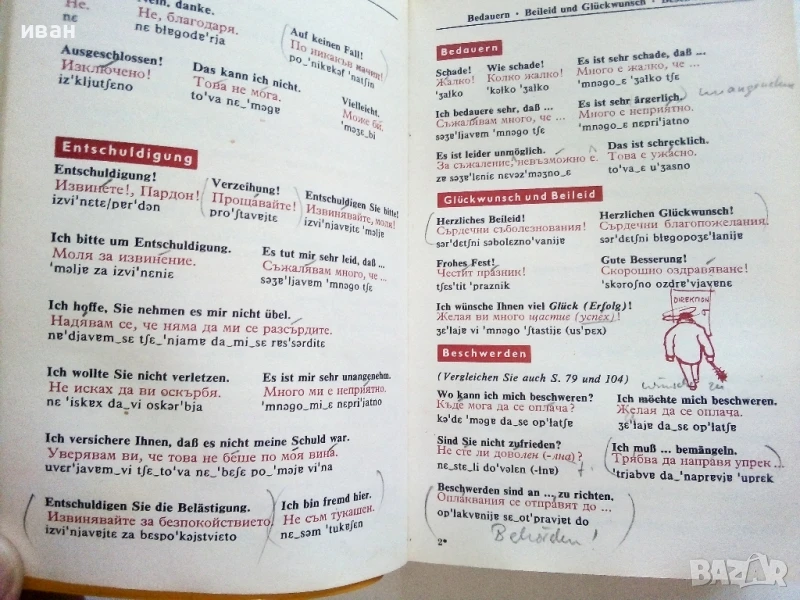 иван
Не.
nɛ
Nein, danke.
Не, благодаря.
nɛ bɫɐgodɐ'rja
Auf keinen Fall!
По никакъв начин!
po_'nikɐkəf 'natʃin
Ausgeschlossen!
Изключено!
iz'kljutʃɛno
Das kann ich nicht.
Това не мо́га.
to'va nɛ_'mɔgɐ
Vielleicht.
Може би.
'mɔʒɛ_bi
Entschuldigung
Entschuldigung!
Извинете!, Пардон!
izvi'nɛtɛ/pɐr'dɔn
Verzeihung!
Прощавайте!
pro'ʃtavɐjtɛ
Entschuldigen Sie bitte!
Извинявайте, моля!
izvi'njavɐjtɛ 'mɔljɐ
Ich bitte um Entschuldigung.
Моля за извинение.
'mɔljɐ za izvi'nɛniɛ
Es tut mir sehr leid, daß ...
Съжалявам много, че ...
səʒɐ'ljavɐm 'mnɔgo tʃɛ
Ich hoffe, Sie nehmen es mir nicht übel.
Надявам се, че няма да ми се разсърдите.
nɐ'djavɐm sɛ tʃɛ_'njamɐ da_mi_sɛ rɐs'sərditɛ
Ich wollte Sie nicht verletzen.
Не исках да ви оскърбя.
nɛ 'iskɐx da_vi oskər'bja
Es ist mir sehr unangenehm.
Много ми е неприятно.
'mnɔgo_mi_ɛ nɛpri'jatno
Ich versichere Ihnen, daß es nicht meine Schuld war.
Уверявам ви, че това не беше по моя вина.
uvɛr'javɐm_vi tʃɛ_to'va nɛ_'bɛʃɛ po_'mɔjɐ vi'na
Entschuldigen Sie die Belästigung.
Извинявайте за безпокойствието.
izvi'njavɐjtɛ za bɛspo'kɔjstviɛto
Ich bin fremd hier.
Не съм тукашен.
nɛ_səm 'tukɐʃɛn
Bedauern · Beileid und Glückwunsch ·
Bedauern
Schade!
Жалко!
'ʒalko
Wie schade!
Колко жалко!
'kɔlko 'ʒalko
Es ist sehr schade, daß ...
Много е жалко, че ...
'mnɔgo_ɛ 'ʒalko tʃɛ
Ich bedaure sehr, daß ...
Съжалявам много, че ...
səʒɐ'ljavɐm 'mnɔgo tʃɛ
Es ist sehr ärgerlich.
Много е неприятно.
'mnɔgo_ɛ nɛpri'jatno
unangenehm
Es ist leider unmöglich.
За съжаление, невъзможно е.
zɐ səʒɐ'lɛniɛ nɛvəz'mɔʒno_ɛ
Das ist schrecklich.
Това е ужасно.
to'va_ɛ u'ʒasno
Glückwunsch und Beileid
Herzliches Beileid!
Сърдечни съболезнования!
sər'dɛtʃni səbolɛzno'vanijɐ
Herzlichen Glückwunsch!
Сърдечни благопожелания.
sər'dɛtʃni bɫɐgopoʒɛ'lanijɐ
Frohes Fest!
Честит празник!
tʃɛs'tit 'praznik
Gute Besserung!
Скорошно оздравяване!
'skɔroʃno ozdrɐ'vjavɐnɛ
Ich wünsche Ihnen viel Glück (Erfolg)!
Желая ви много щастие (успех)!
ʒɛ'lajɐ vi 'mnɔgo 'ʃtastijɛ (us'pɛx)
DIREKTION
Beschwerden
(Vergleichen Sie auch S. 79 und 104)
Wo kann ich mich beschweren?
Къде мога да се оплача?
kə'dɛ 'mɔgɐ da_sɛ op'latʃɐ
Ich möchte mich beschweren.
Желая да се оплача.
ʒɛ'lajɐ da_sɛ op'latʃɐ
Sind Sie nicht zufrieden?
Не сте ли доволен (-лна)?
nɛ_stɛ_li do'vɔlɛn (-lnɐ)
Ich muß ... bemängeln.
Трябва да направя упрек ...
'trjabvɐ da_nɐ'prɐvjɐ 'uprɛk
Beschwerden sind an ... zu richten.
Оплаквания се отправят до ...
op'lakvɐnijɐ sɛ_ot'pravjɐt do
Behörden!
2*
BAZAR